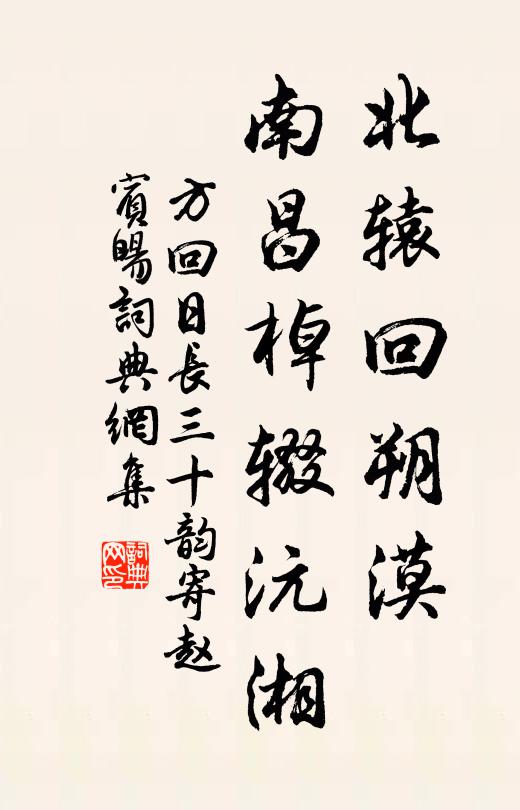 北辕回朔漠
南昌棹辍沅湘
方回日长三十韵寄赵
賓暘詞典網集
詞典
网印